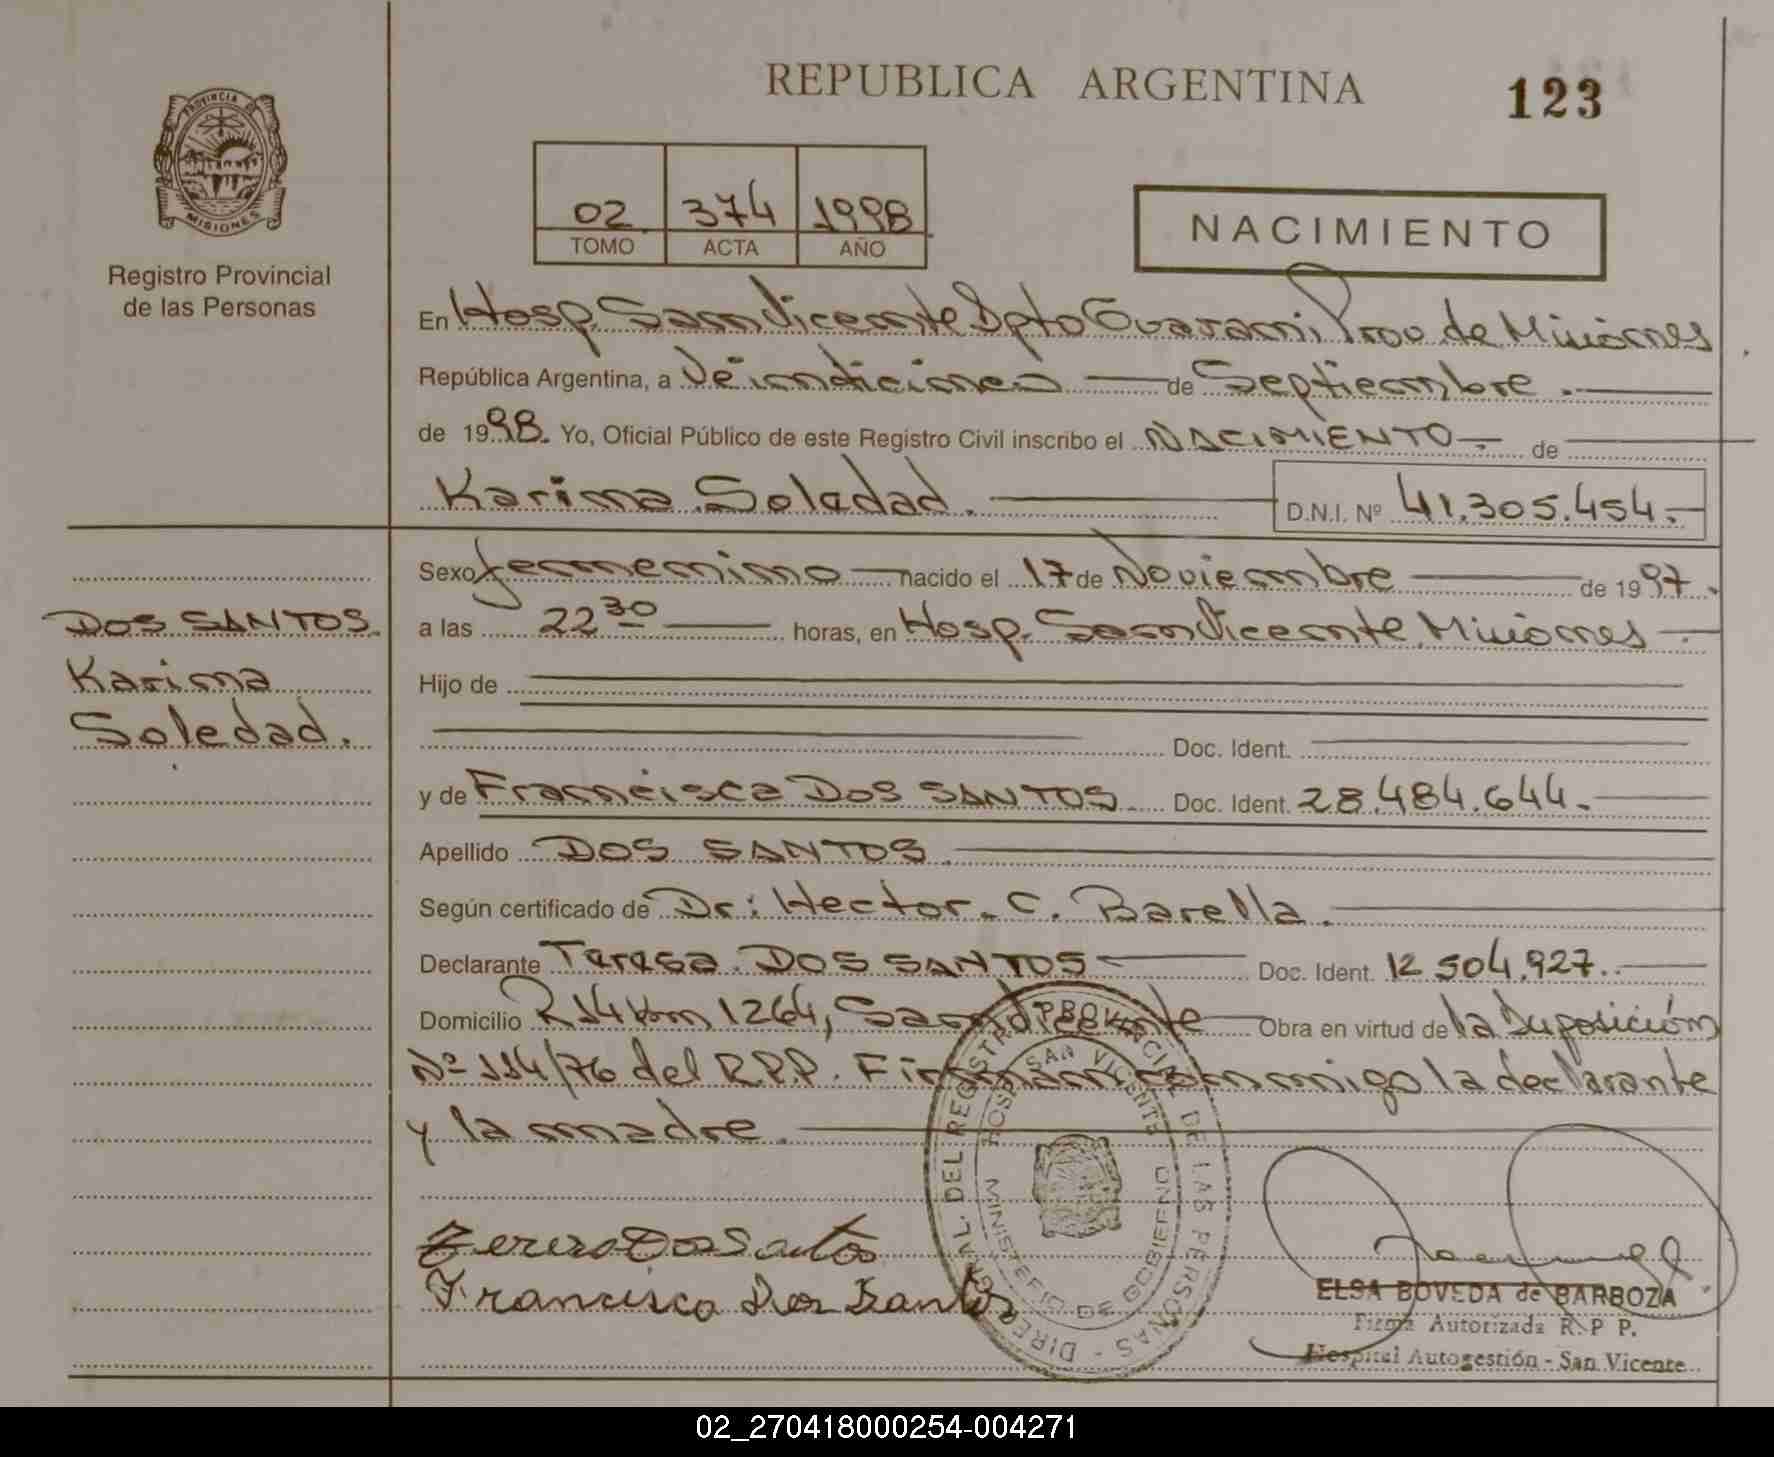 REPUBLICA ARGENTINA
123
PROVINCIA DE
MISIONES
Registro Provincial
de las Personas
02 374 1998
TOMO ACTA AÑO
NACIMIENTO
En Hosp. San Vicente Dpto Guarani, Prov de Misiones
República Argentina, a Veinticinco de Septiembre.
de 1998. Yo, Oficial Público de este Registro Civil inscribo el NACIMIENTO de
Karina Soledad. D.N.I. Nº 41.305.454.-
Sexo femenino nacido el 17 de Noviembre de 1997.
DOS SANTOS
Karina
Soledad.
a las 22 30 horas, en Hosp. San Vicente Misiones
Hijo de
Doc. Ident.
y de Francisca DOS SANTOS Doc. Ident. 28.484.644.
Apellido DOS SANTOS
Según certificado de Dr: Hector. C. Barella.
Declarante Teresa DOS SANTOS Doc. Ident. 12.504.927.
Domicilio R 14 km 1264, San Vicente Obra en virtud de la Disposición
Nº 114/76 del R.P.P. Firman conmigo la declarante
y la madre.
DIREC. GRAL. DEL REGISTRO PROVINCIAL DE LAS PERSONAS -
HOSP. SAN VICENTE
MINISTERIO DE GOBIERNO
Francisca Dos Santos
ELSA BOVEDA de BARBOZA
Firma Autorizada R. P P.
Hospital Autogestión - San Vicente
02_270418000254-004271